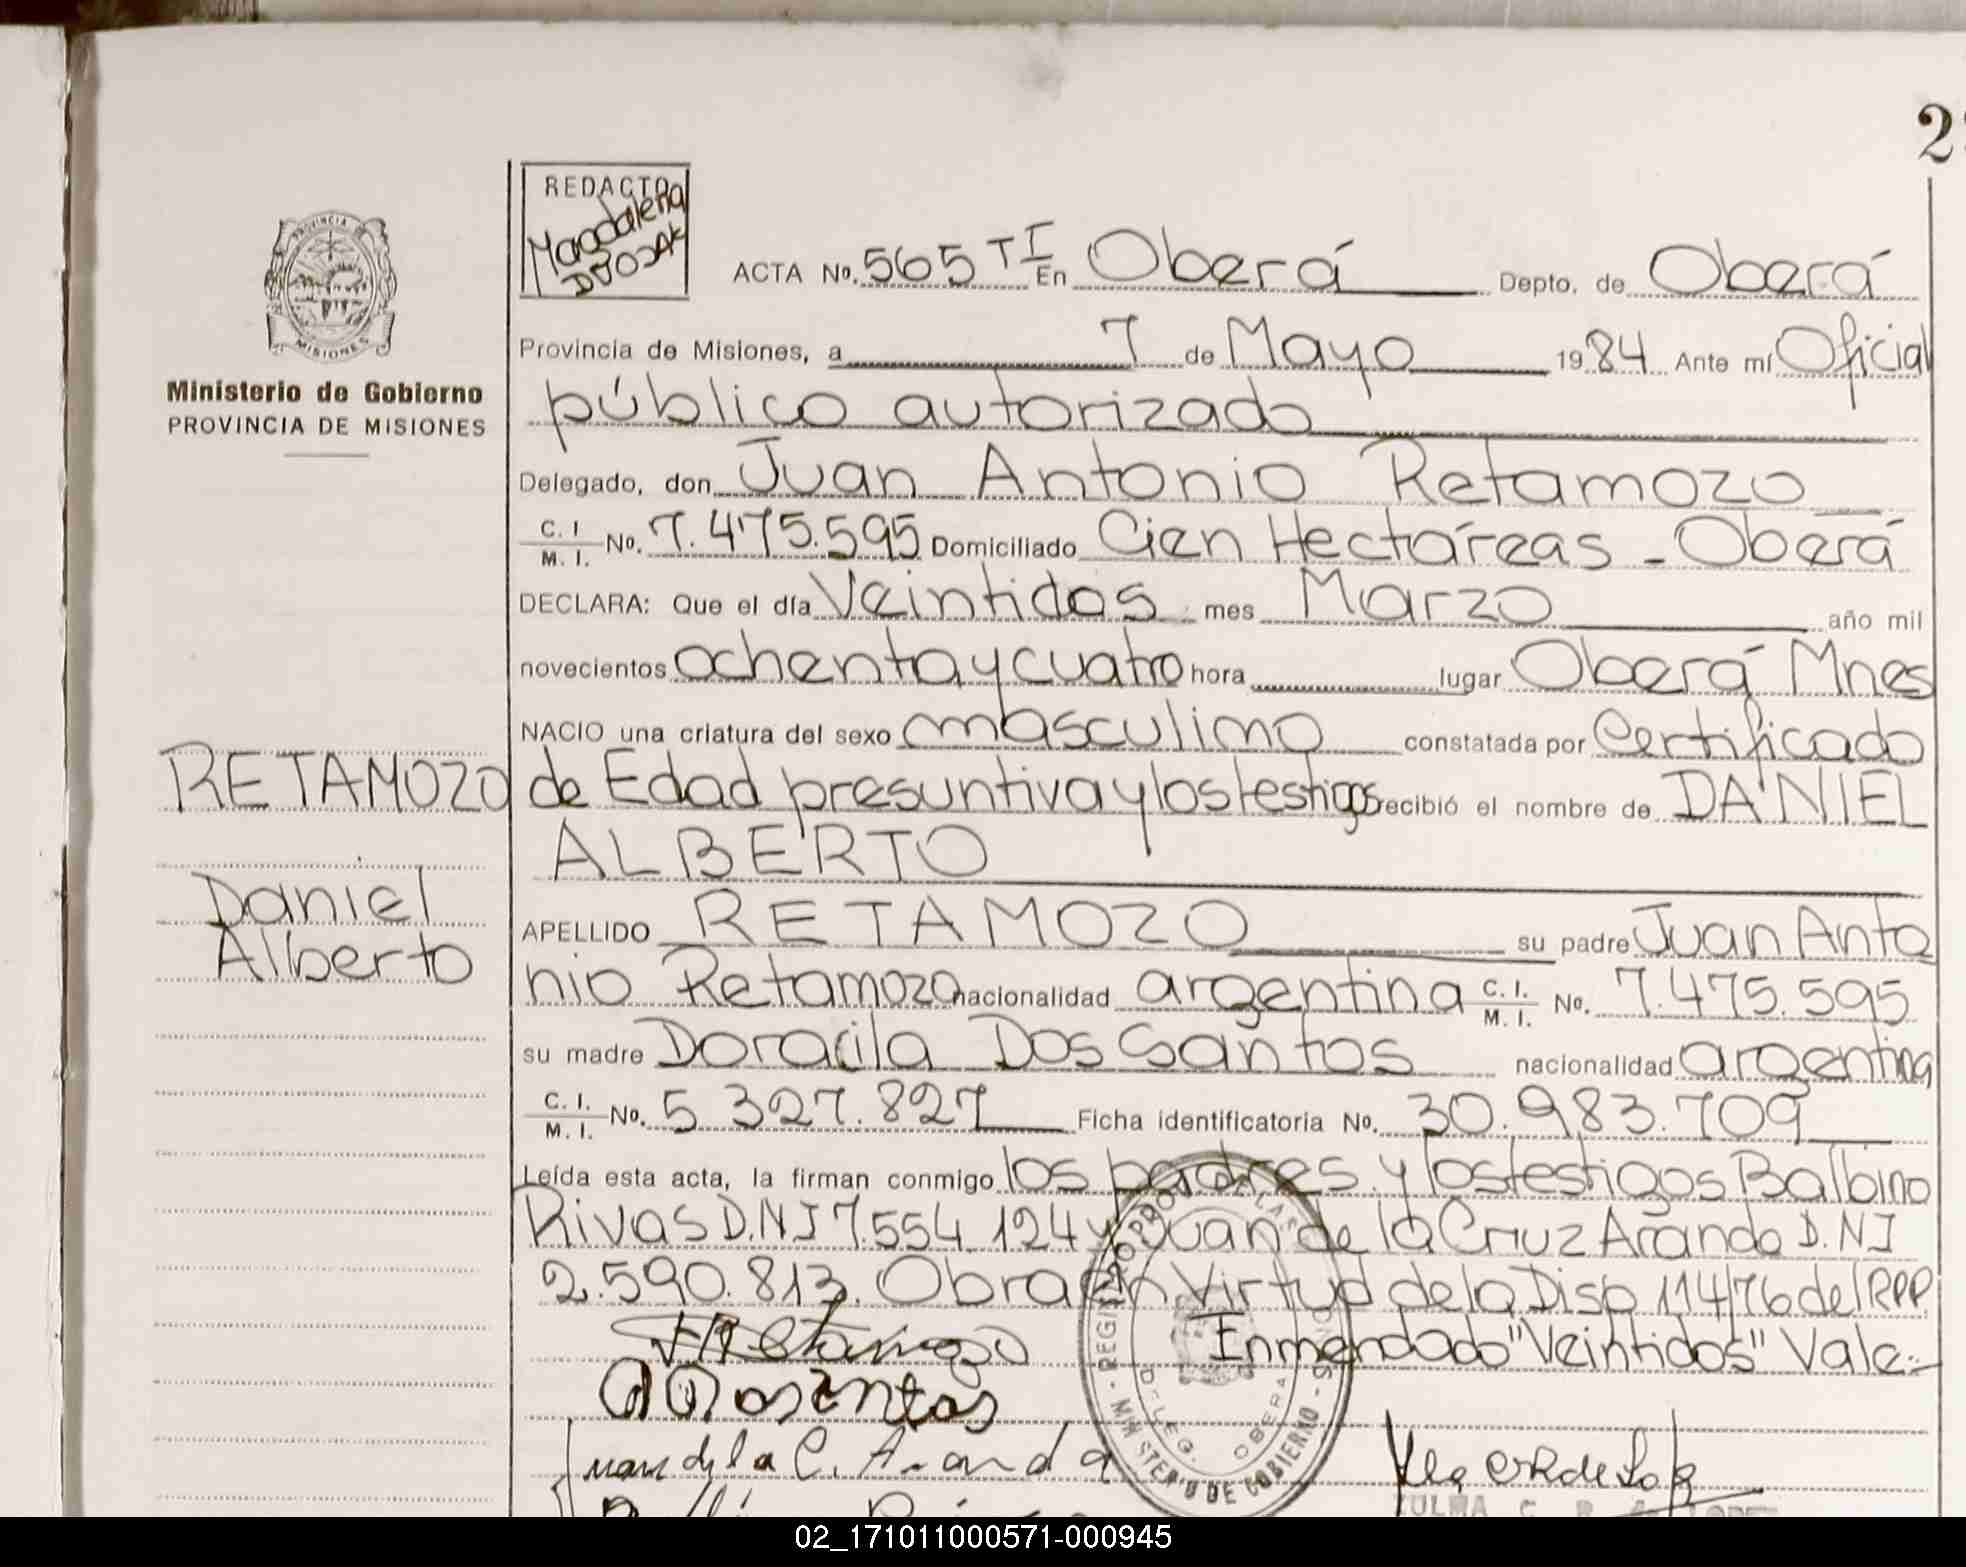 2
REDACTO
Magdalena
ACTA No. 565 TI En Oberá Depto. de Oberá
Provincia de Misiones, a 7 de Mayo 1984 Ante mí Oficial
público autorizado
Delegado, don Juan Antonio Retamozo
C. I. / M. I. No. 7.475.595 Domiciliado Cien Hectáreas - Oberá
DECLARA: Que el día Veintidos mes Marzo año mil
novecientos ochenta y cuatro hora lugar Oberá Mnes
NACIO una criatura del sexo masculino constatada por Certificado
de Edad presuntiva y los testigos recibió el nombre de DANIEL
ALBERTO
APELLIDO RETAMOZO su padre Juan Anto
nio Retamozo nacionalidad argentina C. I. / M. I. No. 7.475.595
su madre Doracila Dos Santos nacionalidad argentina
C. I. / M. I. No. 5.327.827 Ficha identificatoria No. 30.983.709
Leída esta acta, la firman conmigo los padres y los testigos Balbino
Rivas D.N.I 7.554.124 y Juan de la Cruz Aranda D.N.I
2.590.813. Obra en Virtud de la Disp. 114/76 del RPP.
Enmendado "Veintidos" Vale.
Juan de la C. Aranda
PROVINCIA DE
MISIONES
Ministerio de Gobierno
PROVINCIA DE MISIONES
RETAMOZO
Daniel
Alberto
MINISTERIO DE GOBIERNO
DELEG. OBERA
ZULMA C.
02_171011000571-000945